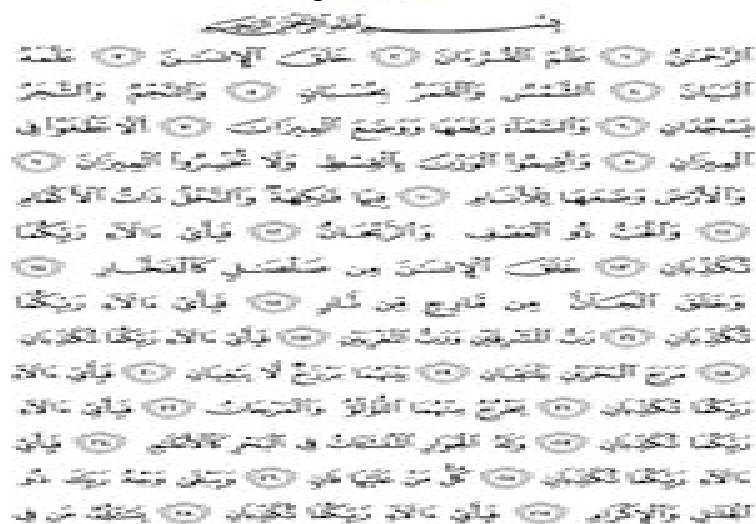 بسم الله الرحمن الرحيم
الرحمن علم القرءان خلق الإنسن علمه
البيان الشمس والقمر بحسبان والنجم والشجر
يسجدان والسماء رفعها ووضع الميزان ألا تطغوا في
الميزان وأقيموا الوزن بالقسط ولا تخسروا الميزان
والأرض وضعها للأنام فيها فكهة والنخل ذات الأكمام
والحب ذو العصف والريحان فبأي ءالاء ربكما
تكذبان خلق الإنسن من صلصل كالفخار
وخلق الجان من مارج من نار فبأي ءالاء ربكما
تكذبان رب المشرقين ورب المغربين فبأي ءالاء ربكما تكذبان
مرج البحرين يلتقيان بينهما برزخ لا يبغيان فبأي ءالاء
ربكما تكذبان يخرج منهما اللؤلؤ والمرجان فبأي ءالاء
ربكما تكذبان وله الجوار المنشات في البحر كالأعلم فبأي
ءالاء ربكما تكذبان كل من عليها فان ويبقى وجه ربك ذو
الجلل والإكرام فبأي ءالاء ربكما تكذبان يسله من في